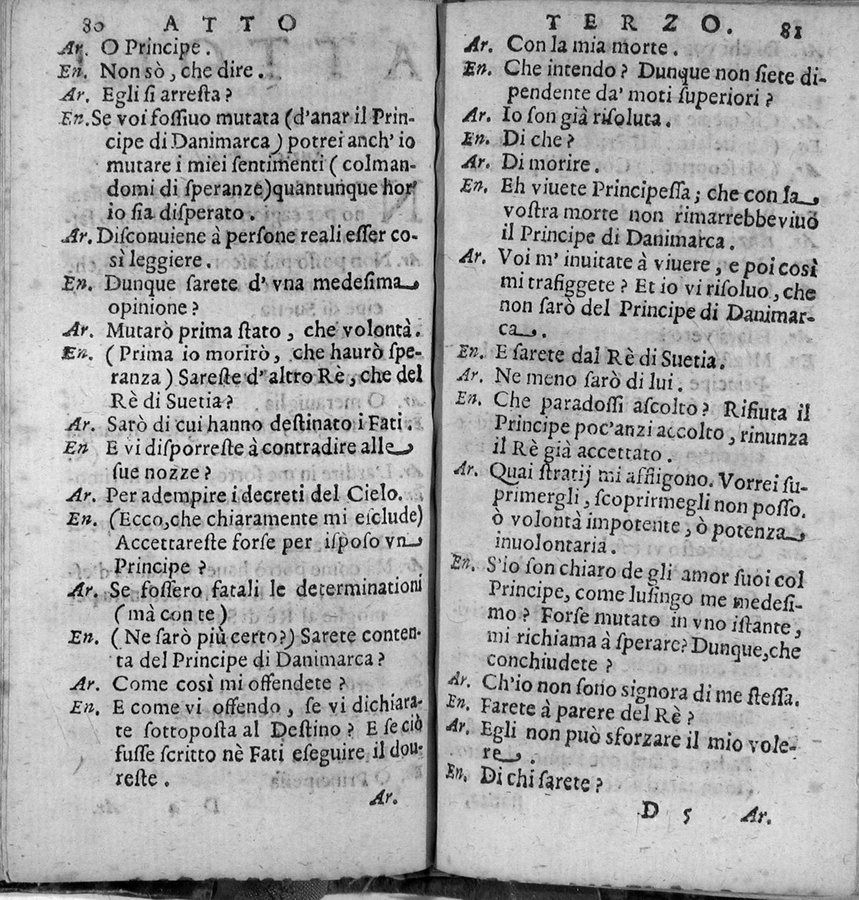 80 ATTO
Ar. O Principe.
En. Non sò, che dire.
Ar. Egli si arresta?
En. Se voi fossiuo mutata (d'anar il Prin-
cipe di Danimarca) potrei anch' io
mutare i miei sentimenti (colman-
domi di speranze) quantunque hor'
io sia disperato.
Ar. Disconuiene à persone reali esser co-
sì leggiere.
En. Dunque sarete d' vna medesima
opinione?
Ar. Mutarò prima stato, che volontà.
En. (Prima io morirò, che haurò spe-
ranza) Sareste d' altro Rè, che del
Rè di Suetia?
Ar. Sarò di cui hanno destinato i Fati.
En E vi disporreste à contradire alle
sue nozze?
Ar. Per adempire i decreti del Cielo.
En. (Ecco, che chiaramente mi esclude)
Accettareste forse per isposo vn
Principe?
Ar. Se fossero fatali le determinationi
(mà con te)
En. (Ne sarò più certo?) Sarete conten-
ta del Principe di Danimarca?
Ar. Come così mi offendete?
En. E come vi offendo, se vi dichiara-
te sottoposta al Destino? E se ciò
fusse scritto nè Fati eseguire il dou-
reste.
Ar.
TERZO. 81
Ar. Con la mia morte.
En. Che intendo? Dunque non siete di-
pendente da' moti superiori?
Ar. Io son già risoluta.
En. Di che?
Ar. Di morire.
En. Eh viuete Principessa; che con la
vostra morte non rimarrebbe viuo
il Principe di Danimarca.
Ar. Voi m' inuitate à viuere, e poi così
mi trafiggete? Et io vi risoluo, che
non sarò del Principe di Danimar-
ca.
En. E sarete dal Rè di Suetia.
Ar. Ne meno sarò di lui.
En. Che paradossi ascolto? Rifiuta il
Principe poc'anzi accolto, rinunza
il Rè già accettato.
Ar. Quai stratij mi affligono. Vorrei su-
primergli, scoprirmegli non posso.
ò volontà impotente, ò potenza
inuolontaria.
En. S'io son chiaro de gli amor suoi col
Principe, come lusingo me medesi-
mo? Forse mutato in vno istante,
mi richiama à sperare? Dunque, che
conchiudete?
Ar. Ch'io non sono signora di me stessa.
En. Farete à parere del Rè?
Ar. Egli non può sforzare il mio vole-
re.
En. Di chi sarete?
D 5 Ar.